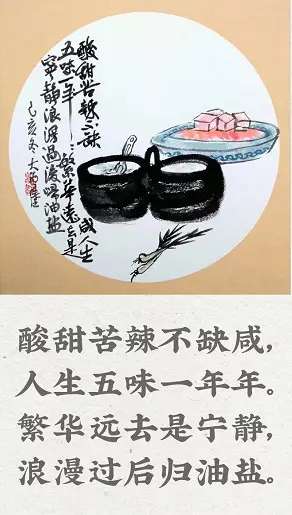 酸甜苦辣不缺咸人生
五味一年年繁华远去是
宁静浪漫过后归油盐
己亥冬大
酸甜苦辣不缺咸，
人生五味一年年。
繁华远去是宁静，
浪漫过后归油盐。